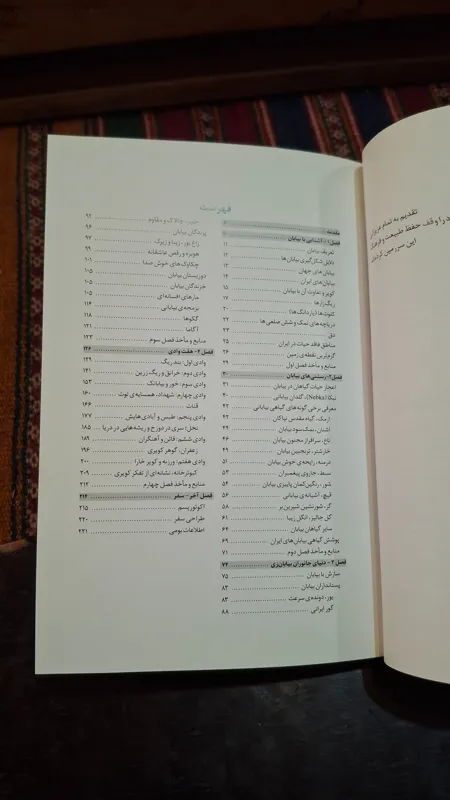 تقدیم به تمام عزیزانی
در راه وقف حفظ طبیعت و فرهنگ
این سرزمین کرده‌اند
فهرست
مقدمه
فصل ۱ - آشنایی با بیابان
تعریف بیابان ۱۱
دلایل شکل‌گیری بیابان‌ها ۱۲
بیابان‌های جهان ۱۳
بیابان‌های ایران ۱۴
کویر و تفاوت آن با بیابان ۱۵
ریگ‌زارها ۱۷
کلوت‌ها (یاردانگ‌ها) ۲۰
دریاچه‌های نمک و شش ضلعی‌ها ۲۲
دق ۲۳
مناطق فاقد حیات در ایران ۲۴
گرم‌ترین نقطه‌ی زمین ۲۶
منابع و مآخذ فصل اول ۲۹
فصل ۲ - رستنی‌های بیابان ۳۰
اعجاز حیات گیاهان در بیابان ۳۱
نبکا (Nebka)، گلدان بیابانی ۴۰
معرفی برخی گونه‌های گیاهی بیابانی ۴۲
ارمک، گیاه مقدس نیاکان ۴۲
اشنان، نمک‌سود بیابان ۴۴
تاغ، سرافراز مجنون بیابان ۴۶
خارشتر، ترنجبین بیابان ۴۹
درمنه، رایحه‌ی خوش بیابان ۵۱
سبط، جاروی پیغمبران ۵۳
شور، رنگین‌کمان پاییزی بیابان ۵۴
قیچ، آشیانه‌ی بیابانی ۵۶
گز، شورنشین شیرین‌بر ۵۸
گل جالیز، انگل زیبا ۶۱
سایر گیاهان بیابان ۶۴
پوشش گیاهی بیابان‌های ایران ۶۹
منابع و مآخذ فصل دوم ۷۱
فصل ۳ - دنیای جانوران بیابان‌زی ۷۴
سازش با بیابان ۷۵
پستانداران بیابان ۸۳
یوز، دونده‌ی سرعت ۸۳
گور ایرانی ۸۸
جبیر، چالاک و مقاوم ۹۲
پرندگان بیابان ۹۶
زاغ بور، زیبا و زیرک ۹۷
هوبره و رقص عاشقانه ۹۹
چکاوک‌های خوش صدا ۱۰۱
دوزیستان بیابان ۱۰۵
خزندگان بیابان ۱۰۵
مارهای افسانه‌ای ۱۰۵
بزمجه‌ی بیابانی ۱۱۴
گکوها ۱۱۸
آگاما ۱۲۱
منابع و مآخذ فصل سوم ۱۲۳
فصل ۴ - هفت وادی ۱۲۶
وادی اول: بند ریگ ۱۲۹
وادی دوم: خرانق و ریگ زرین ۱۴۱
وادی سوم: خور و بیابانک ۱۵۳
وادی چهارم: شهداد، همسایه‌ی لوت ۱۶۵
قنات ۱۶۶
وادی پنجم: طبس و آبادی‌هایش ۱۷۷
نخل؛ سری در دوزخ و ریشه‌هایی در دریا ۱۸۵
وادی ششم: قائن و آهنگران ۱۸۹
زعفران، گوهر کویری ۱۹۶
وادی هفتم: ورزنه و کویر خارا ۲۰۰
کبوترخانه، نشانه‌ای از تفکر کویری ۲۰۹
منابع و مآخذ فصل چهارم ۲۱۲
فصل آخر - سفر ۲۱۴
اکوتوریسم ۲۱۵
طراحی سفر ۲۲۰
اطلاعات بومی ۲۳۱